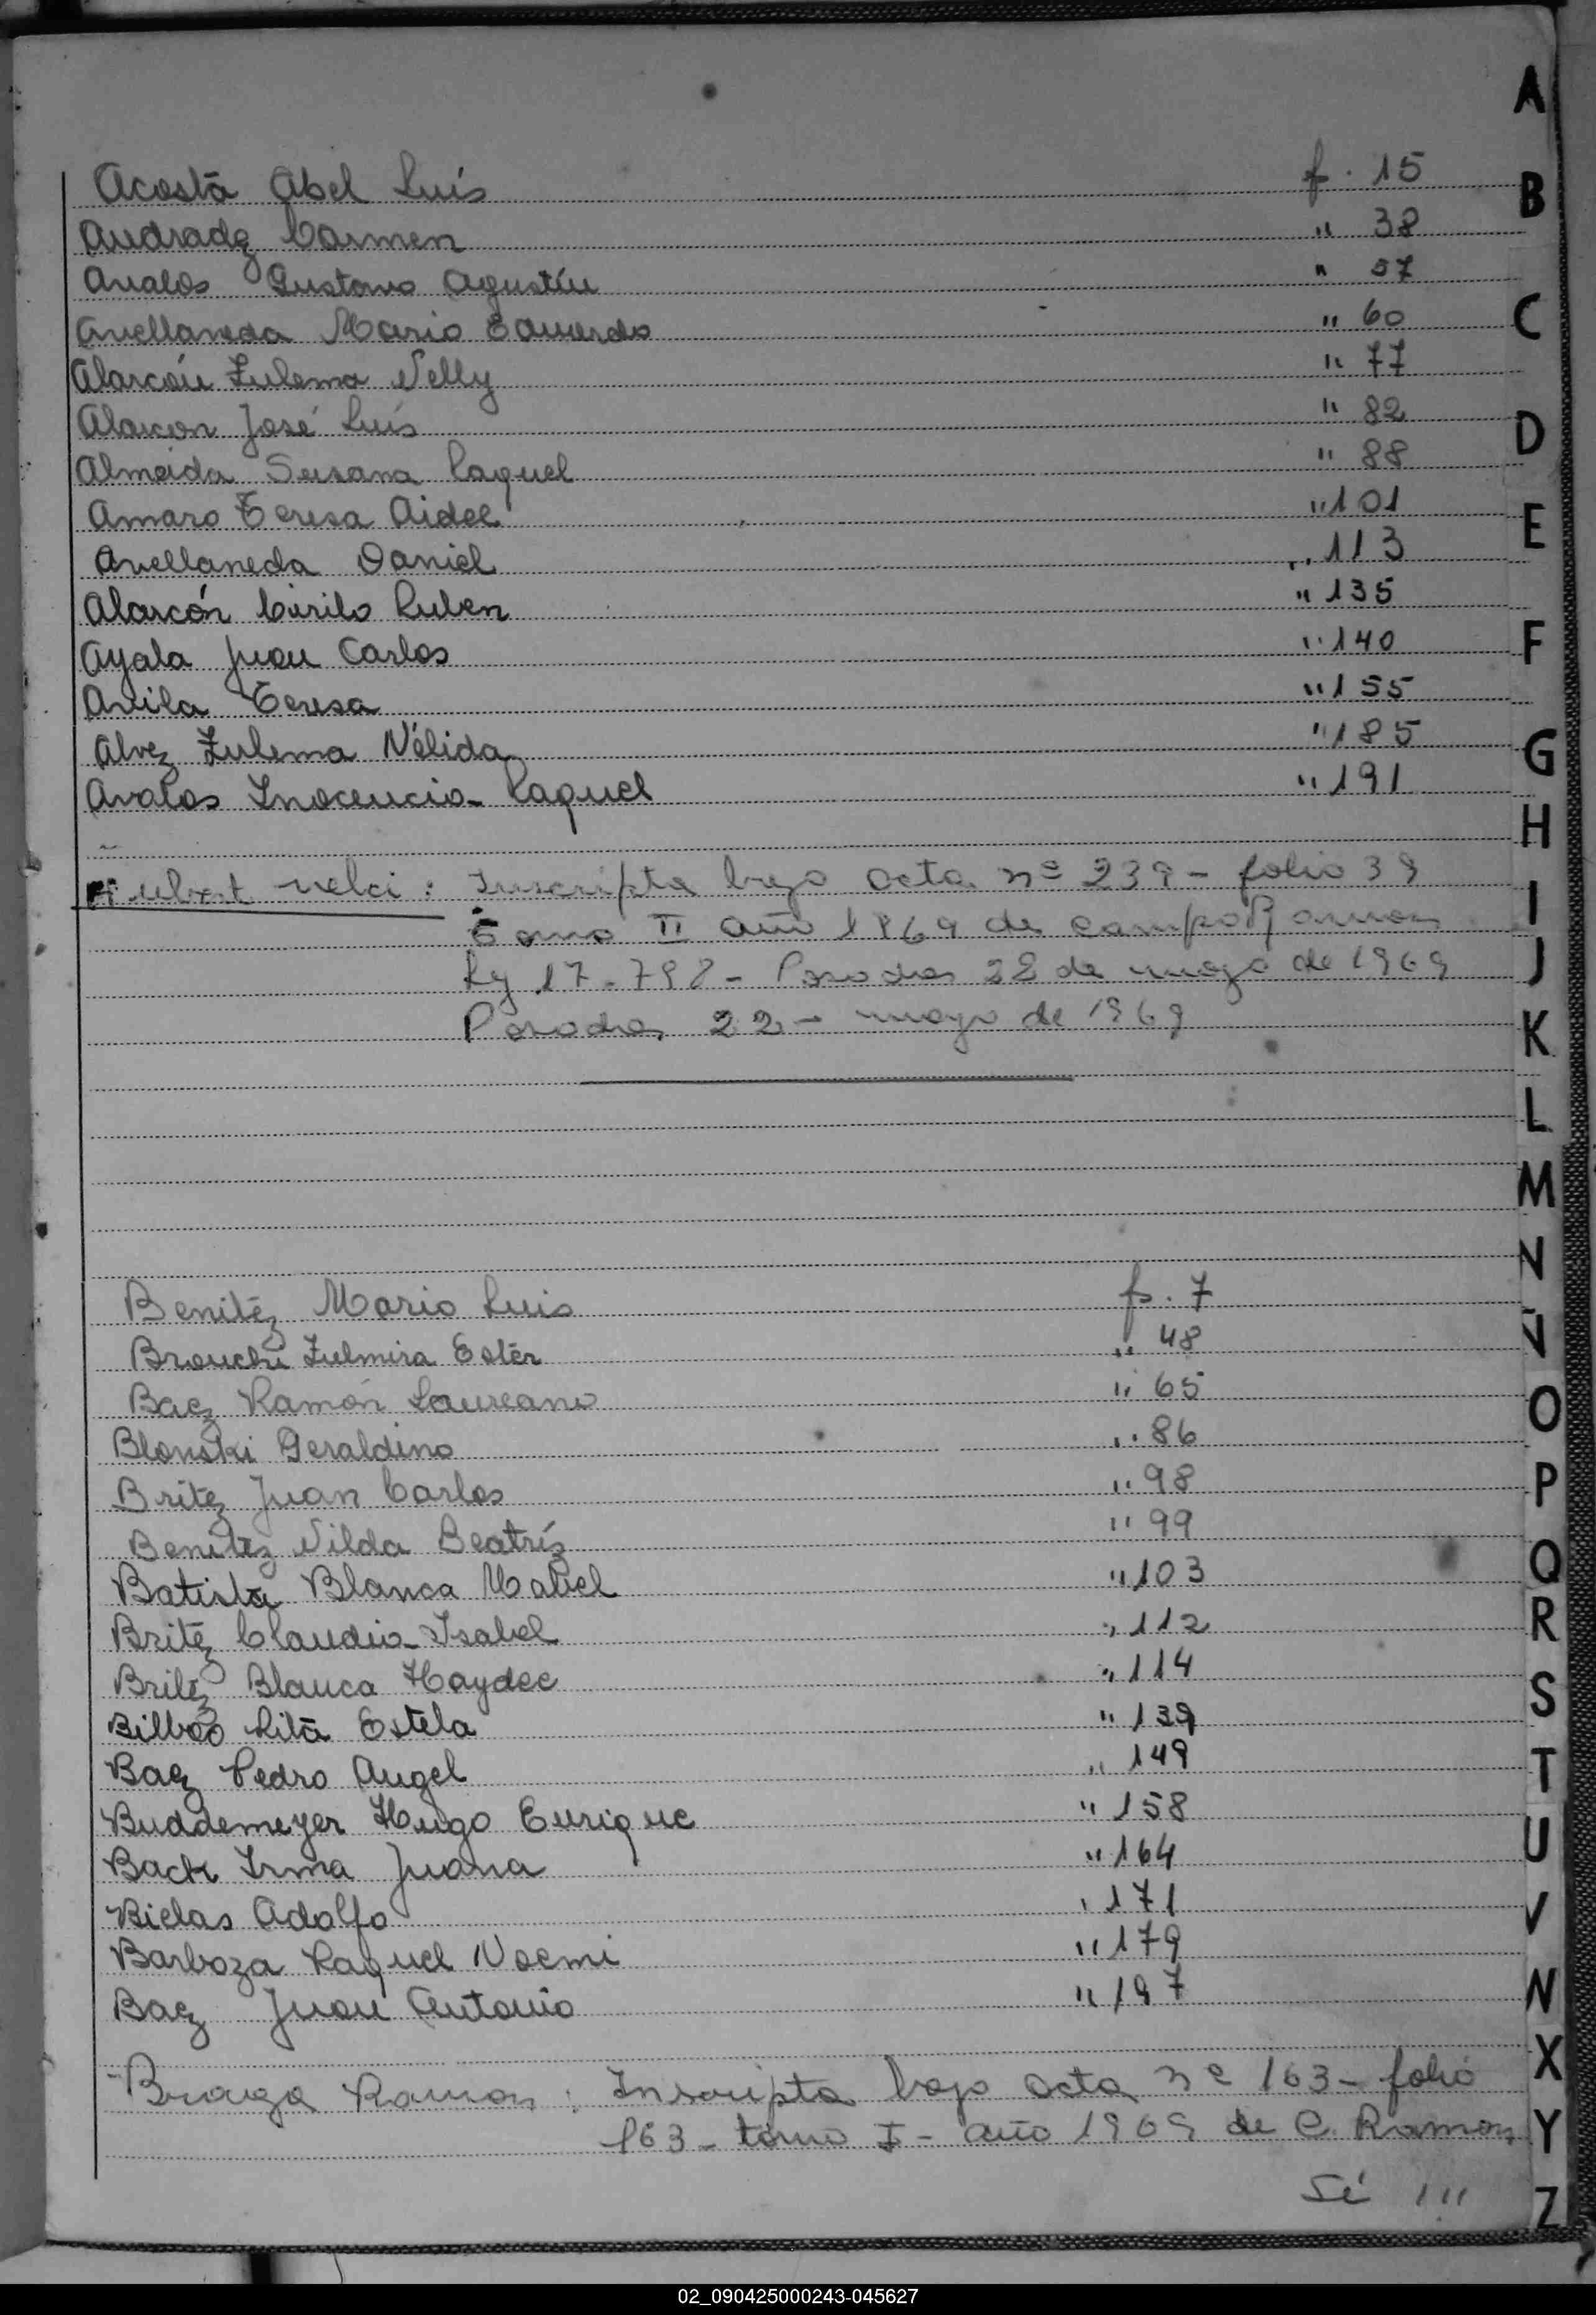 Acosta Abel Luis f. 15
Andradez Carmen " 38
Avalos Gustavo Agustín " 57
Avellaneda Mario Eduardo " 60
Alarcón Zulema Nelly " 77
Alarcon José Luis " 82
Almeida Susana Raquel " 88
Amaro Teresa Aidee " 101
Avellaneda Daniel " 113
Alarcón Cirilo Ruben " 135
Ayala Juan Carlos " 140
Avila Teresa " 155
Alvez Zulema Nélida " 185
Avalos Inocencia Raquel " 191
nelci : Inscripta bajo acta nº 239 - folio 39
Tomo II año 1969 de Campo Ramon
Ley 17. - Posadas 22 de mayo de 1969
Posadas, 22 - mayo de 1969
Benitez Mario Luis fs. 7
Zulmira Ester " 48
Baez Ramón Laureano " 65
Blonski Geraldino " 86
Britez Juan Carlos " 98
Benitez Nilda Beatríz " 99
Batista Blanca Mabel " 103
Britez Claudia Isabel " 112
Britez Blanca Haydee " 114
Bilbao Rita Estela " 139
Baez Pedro Angel " 149
Buddemeyer Hugo Enrique " 158
Back Irma Juana " 164
Bielas Adolfo " 171
Barboza Raquel Noemi " 179
Baez Juan Antonio " 197
- Braga Ramon : Inscripta bajo acta nº 163 - folio
163 - tomo I - año 1969 de C. Ramon
Sí !!!
A
B
C
D
E
F
G
H
I
J
K
L
M
N
Ñ
O
P
Q
R
S
T
U
V
W
X
Y
Z
02_090425000243-045627